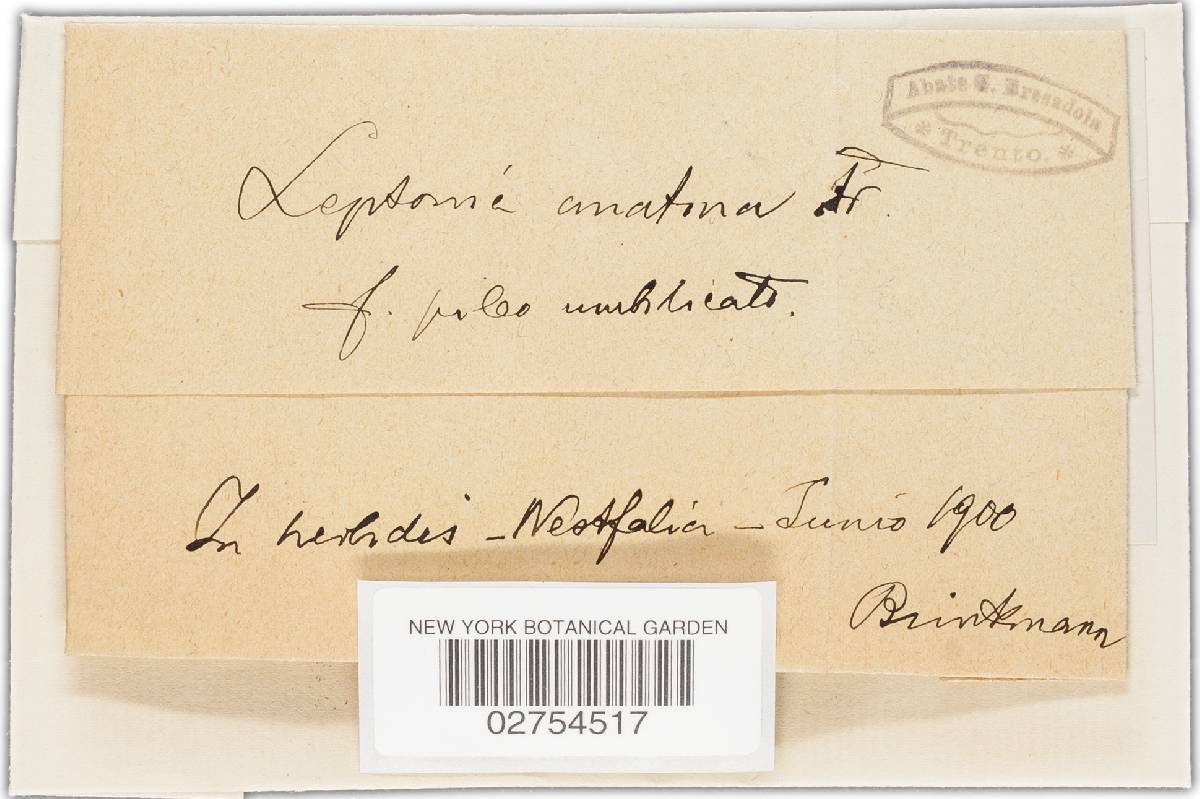 Abate G. Bresadola
* Trento. *
Leptonia anatina Fr.
f. pileo umbilicato.
In herbidis - Westfalia - Junio 1900
Brinkmann
NEW YORK BOTANICAL GARDEN
02754517